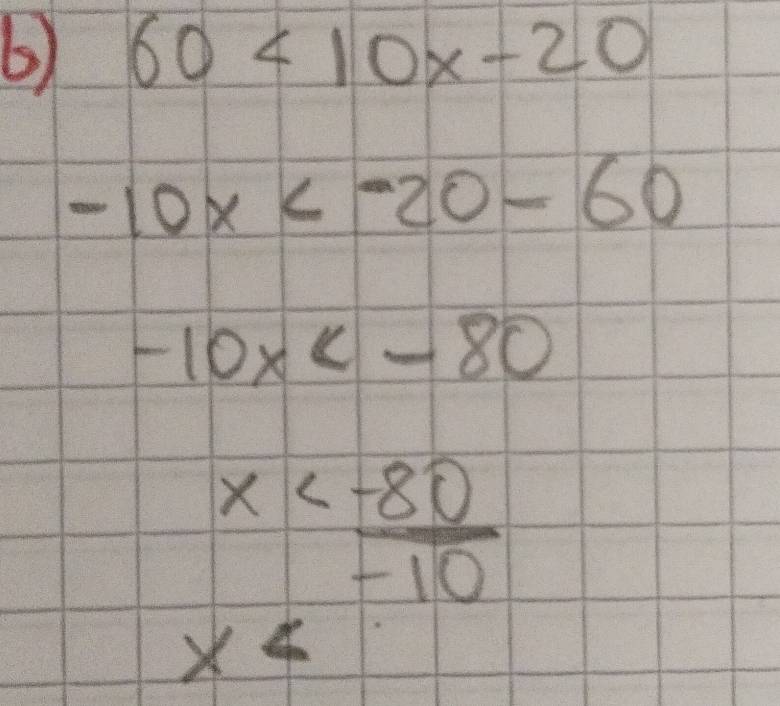 b) 60 < 10x - 20
-10x < -20 - 60
-10x < -80
x < -80
-10
x <